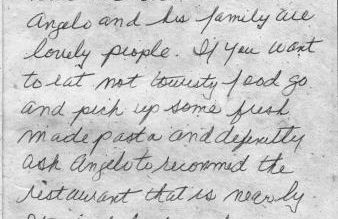 Angelo and his family are
lovely people. If you want
to eat not touristy food go
and pick up some fresh
made pasta and definetly
ask Angelo to recommed the
restaurant that is nearby